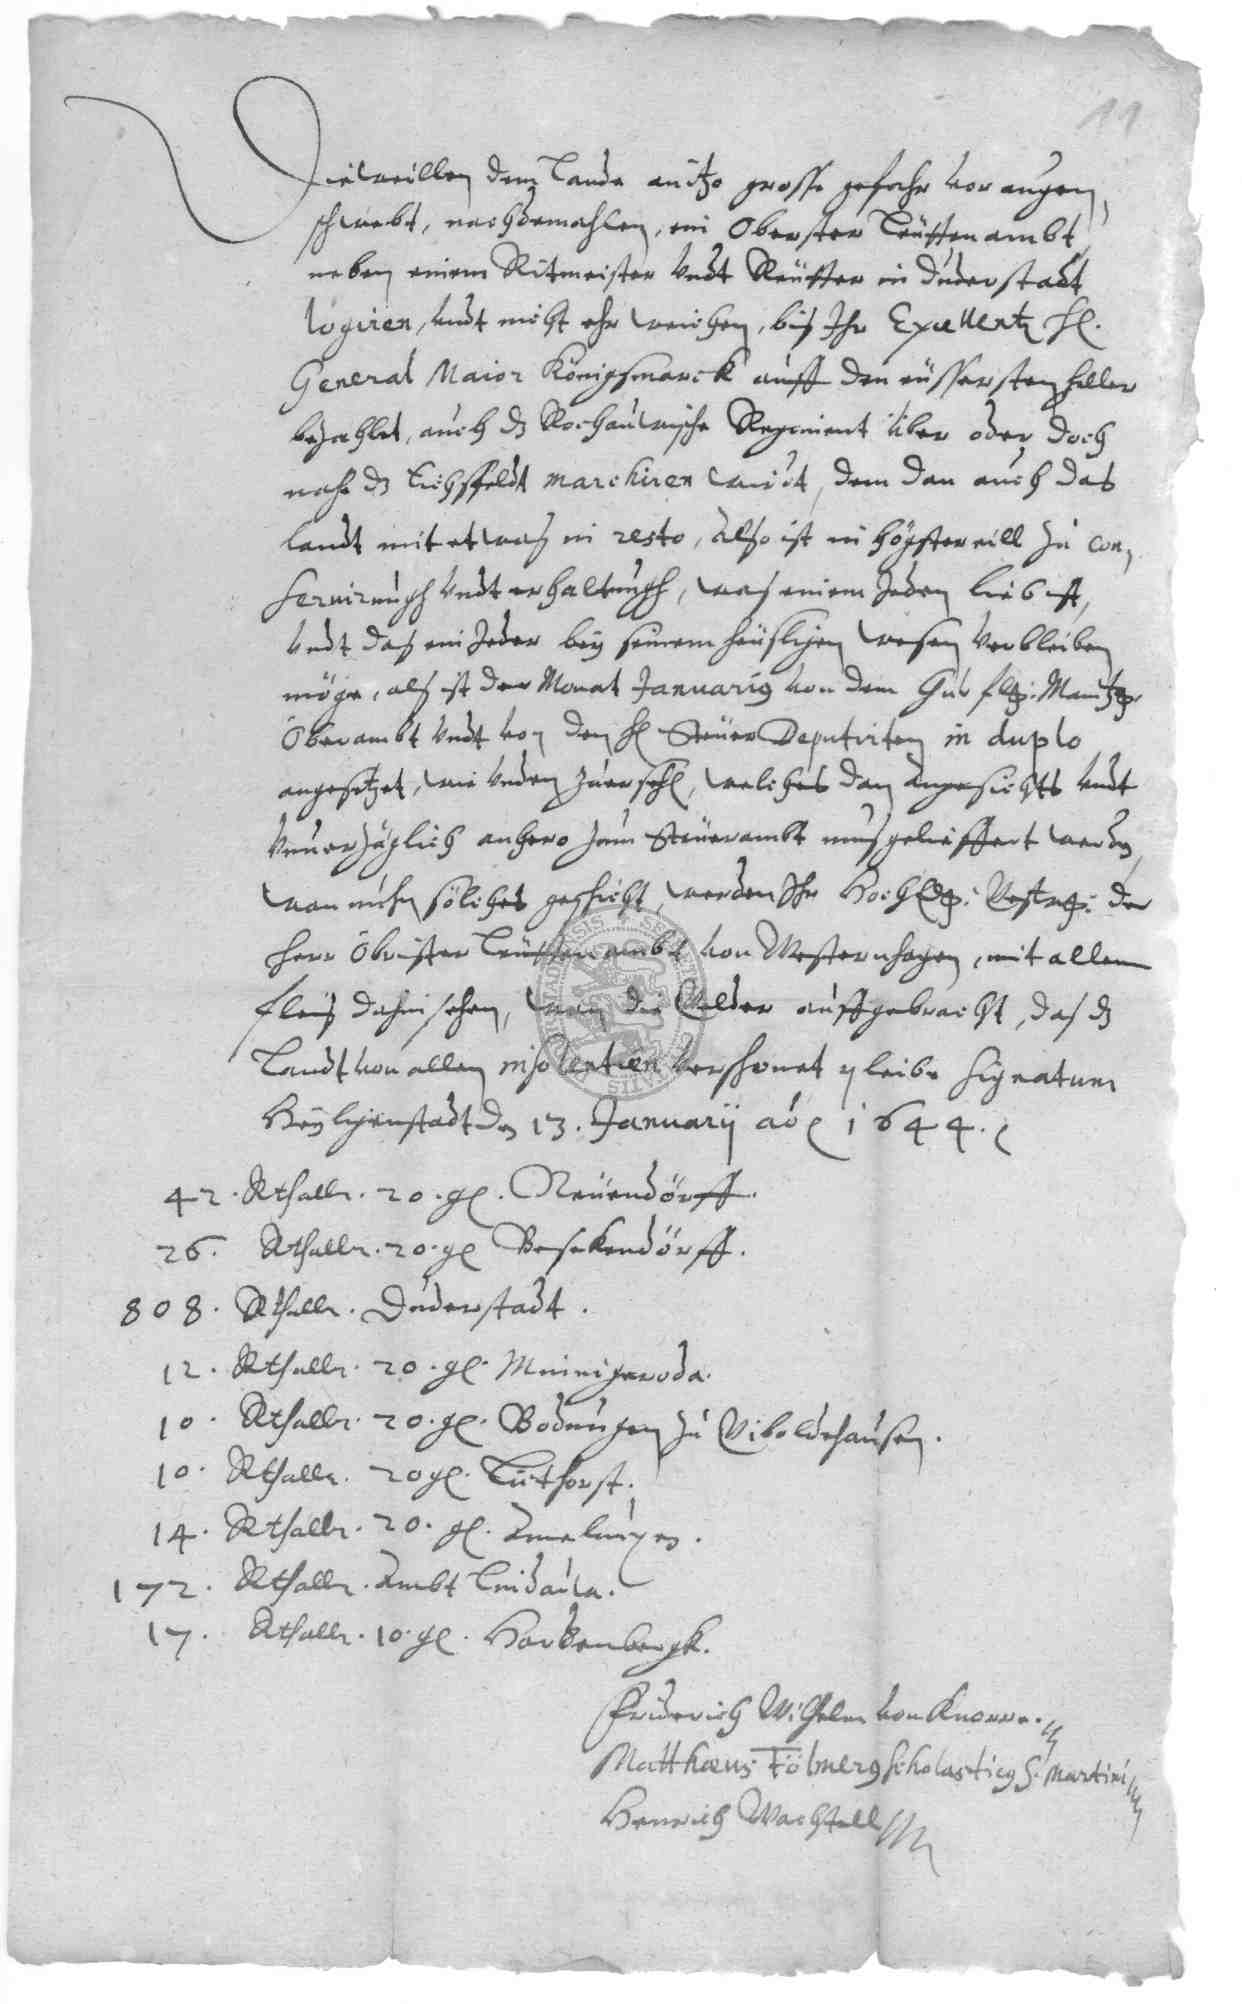 11
Dieweillen dem Lande anitzo grosse gefahr vor augen
schwebt, nachdemahlen, ein Oberster Leüttenambt
neben einem Ritmeister vndt Reütter in Duderstadt
logiren, vndt nicht ehr weichen, biß Ihr Excellentz H.
General Maior Königsmarck auff den eüssersten heller
bezahlet, auch dz Rochauwische Regiment über oder doch
nahe dz Eichsfeldt marchiren wirdt, dem dan auch das
landt mit etwaß in resto, Also ist in högster eill zu con,
servirungh vndt erhaltungh, waß einem Jeden lieb ist,
vndt daß ein Jeder bey seinem heüslichen wesen verbleiben
möge, alß ist der Monat Januarius von dem Churfl: Maintz:
Oberambt vndt von den H Steüer Deputirten in duplo
angesetzet, wie vnden zuersehen, welches dan Angesichts vndt
vnuerzüglich anhero zum Steüerambt muß gelieffert werden,
wan nuhn solches geschicht, werden Ihr HochEdl: Vestr: der
Herr Obrister Leüttenambt von Westernhagen, mit allem
fleiß dahin sehen, wan die Gelder auffgebracht, daß dz
Landt von allen insolentien verschonet pleibe Signatum
Heyligenstadt den 13. Januarij ao 1644.
42. Rthaler. 20. gl. Neüendörff.
26. Rthaler. 20. gl Besekendörff.
808. Rthaler. Duderstadt.
12. Rthaler. 20. gl. Minnigeroda.
10. Rthaler. 20. gl. Bodungen zu Viboldehausen.
10. Rthaler. 20 gl. Lüthorst.
14. Rthaler. 20. gl. Amelunxen.
172. Rthaler. Ambt Lindauw.
17. Rthaler. 10. gl. Hardenbergk.
Friderich Wilhelm von Knorre.
Matthaeus Fölmerus Scholasticus S. Martini
Henrich Wachtell